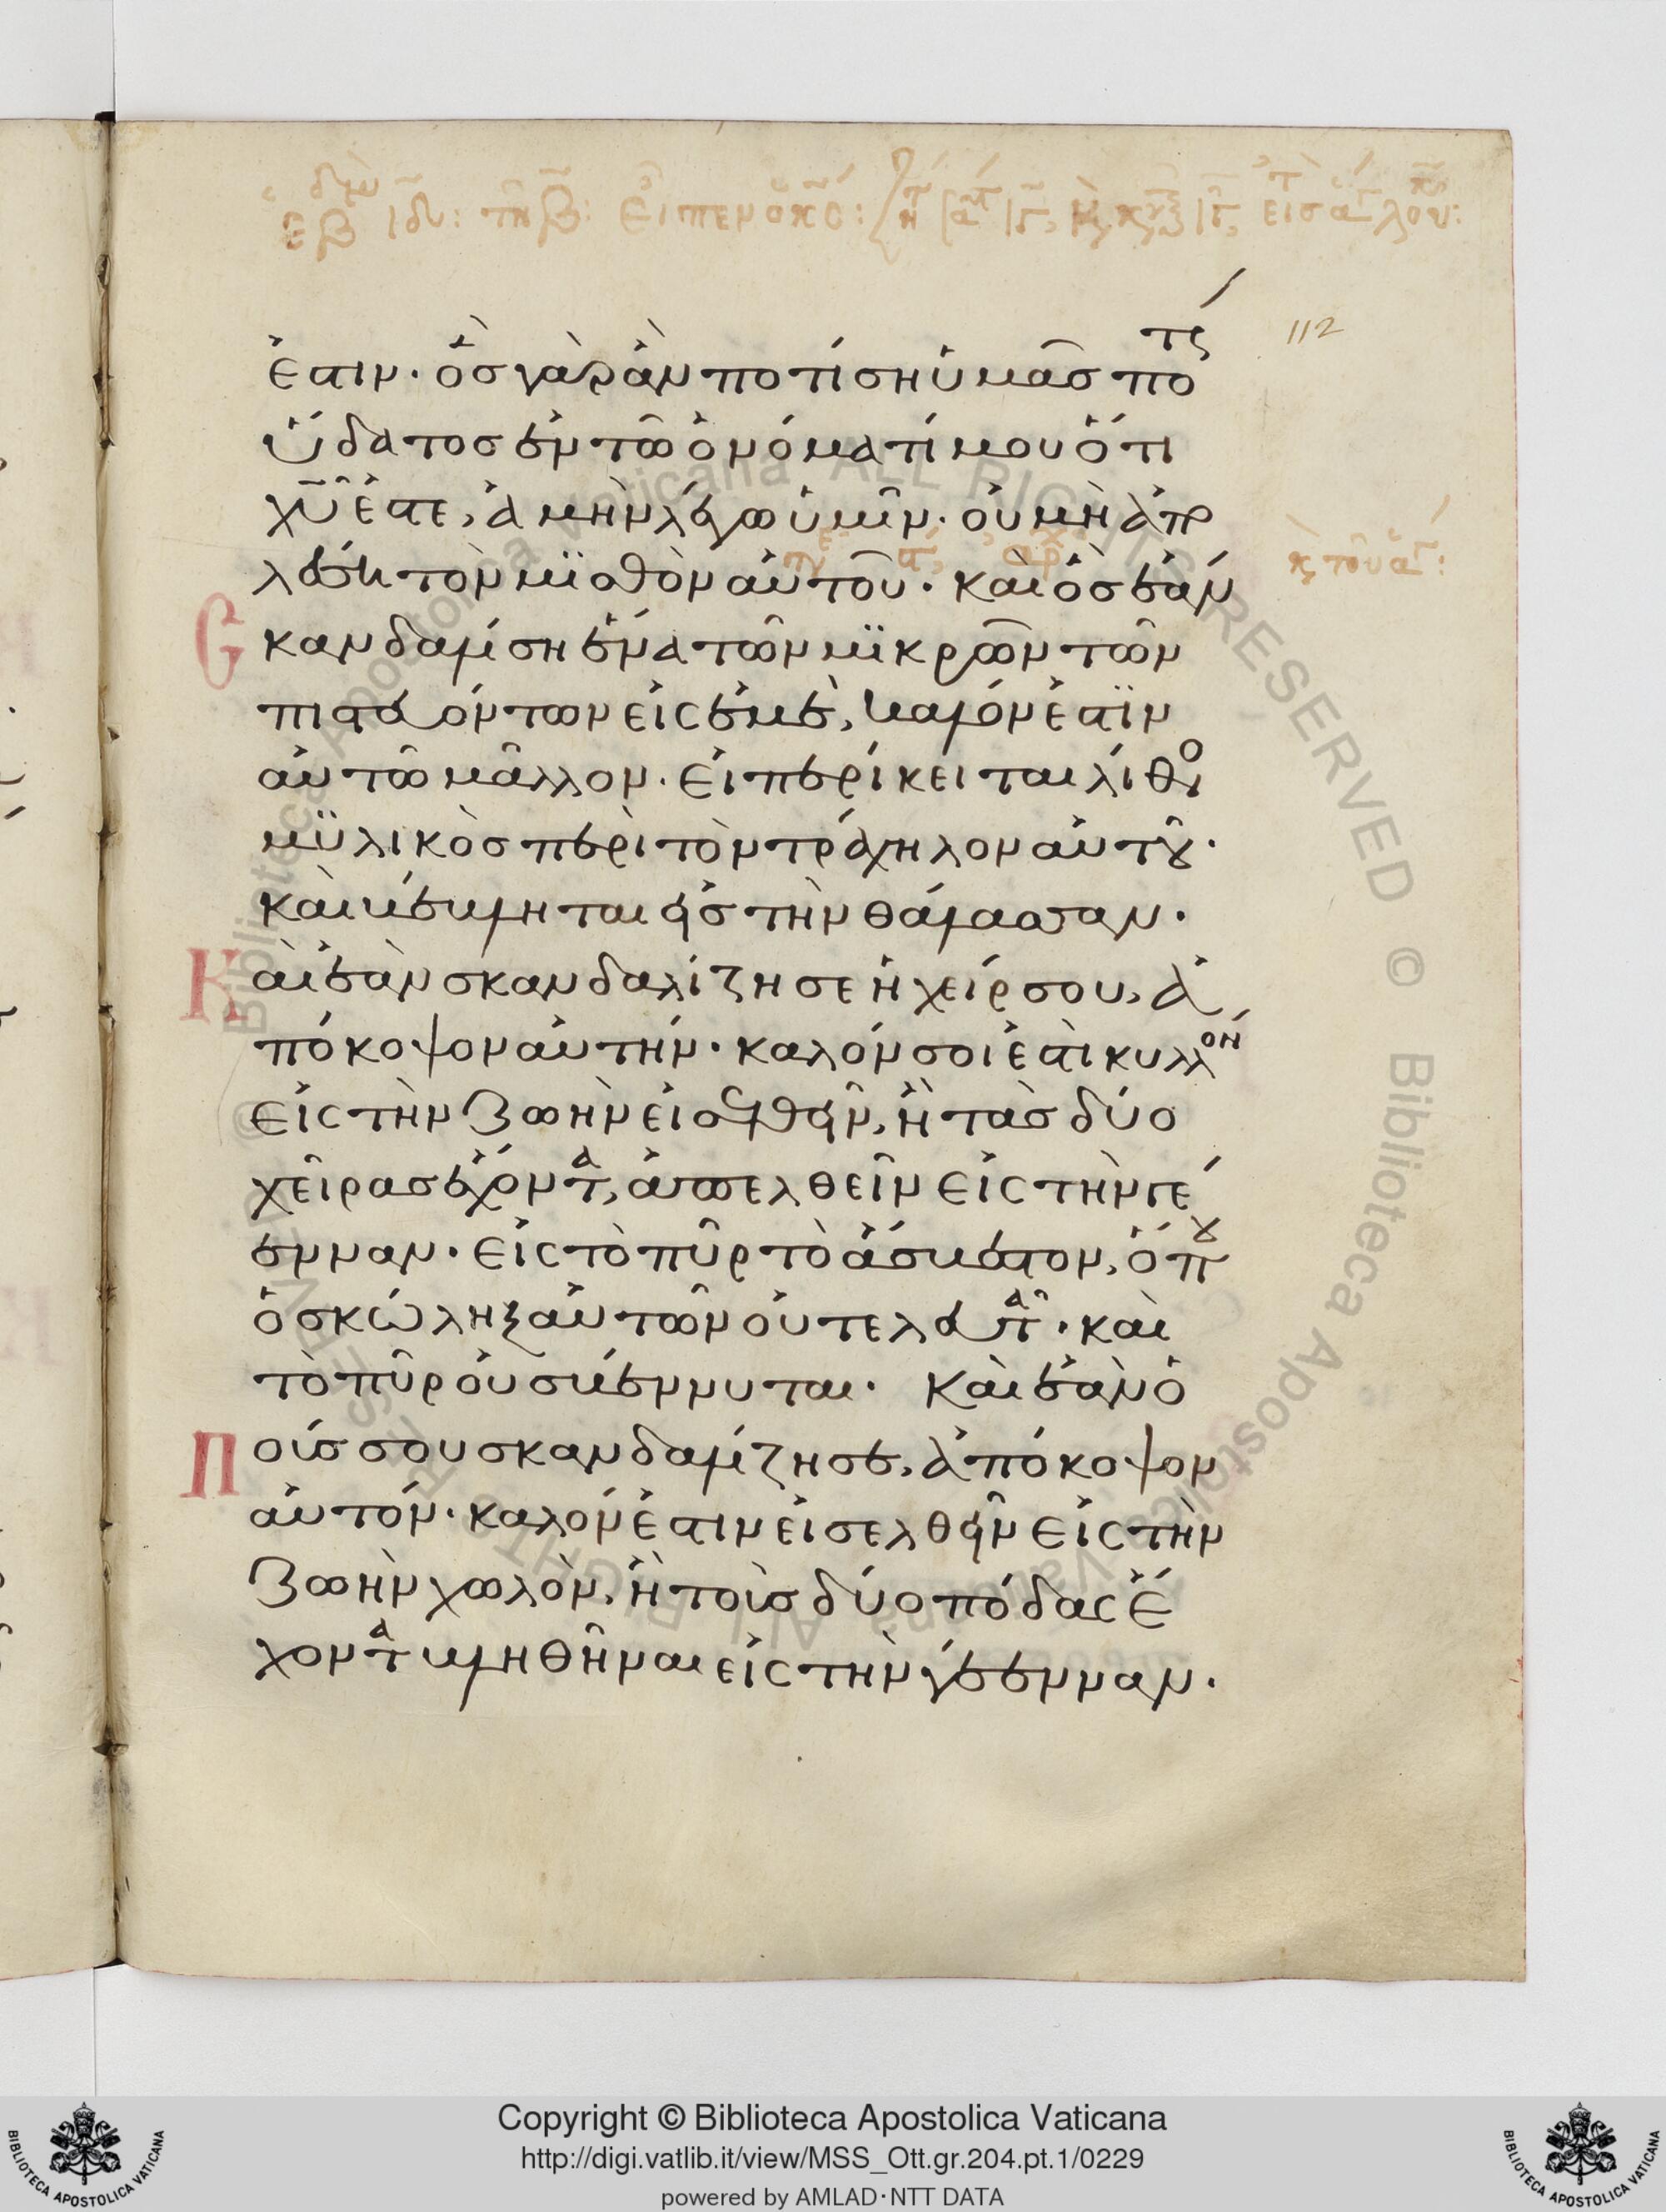 112
ἐστιν· ὃς γὰρ ἂν ποτίση ὑμᾶς ποτς
ὕδατος ἐν τῶ ὀνόματί μου ὅτι
χῦ ἐστε, ἀμὴν λέγω ὑμῖν· οὐ μὴ ἀπο
λέση τὸν μϊσθὸν αὐτοῦ· καὶ ὃς ἐὰν
Σκανδαλίση ἕνα τῶν μϊκρῶν τῶν
πιστευόντων εἰς ἐμὲ, καλόν ἐστϊν
αὐτῶ μᾶλλον· εἰ περίκειται λίθο
μϋλικὸς περὶ τὸν τράχηλον αὐτοῦ·
καὶ βέβληται εἰς τὴν θάλασσαν·
Καὶ ἐὰν σκανδαλίζη σε ἡ χείρ σου, ἀ
πόκοψον αὐτήν· καλόν σοι ἐστὶ κυλλὸν
εἰς τὴν ζωὴν εἰσελθεῖν, ἢ τὰς δύο
χεῖρας ἔχοντα, ἀπελθεῖν εἰς τὴν γέ
ενναν· εἰς τὸ πῦρ τὸ ἄσβεστον, ὅπου
ὁ σκώληξ αὐτῶν οὐ τελευτᾶ· καὶ
τὸ πῦρ οὐ σβέννυται· Καὶ ἐὰν ὁ
Ποὺς σου σκανδαλίζη σε, ἀπόκοψον
αὐτόν· καλόν ἐστιν εἰσελθεῖν εἰς τὴν
ζωὴν χωλὸν, ἢ τοὺς δύο πόδας ἔ
χοντα βληθῆναι εἰς τὴν γέενναν·
Copyright © Biblioteca Apostolica Vaticana
http://digi.vatlib.it/view/MSS_Ott.gr.204.pt.1/0229
powered by AMLAD·NTT DATA
BIBLIOTECA APOSTOLICA VATICANA
BIBLIOTECA APOSTOLICA VATICANA